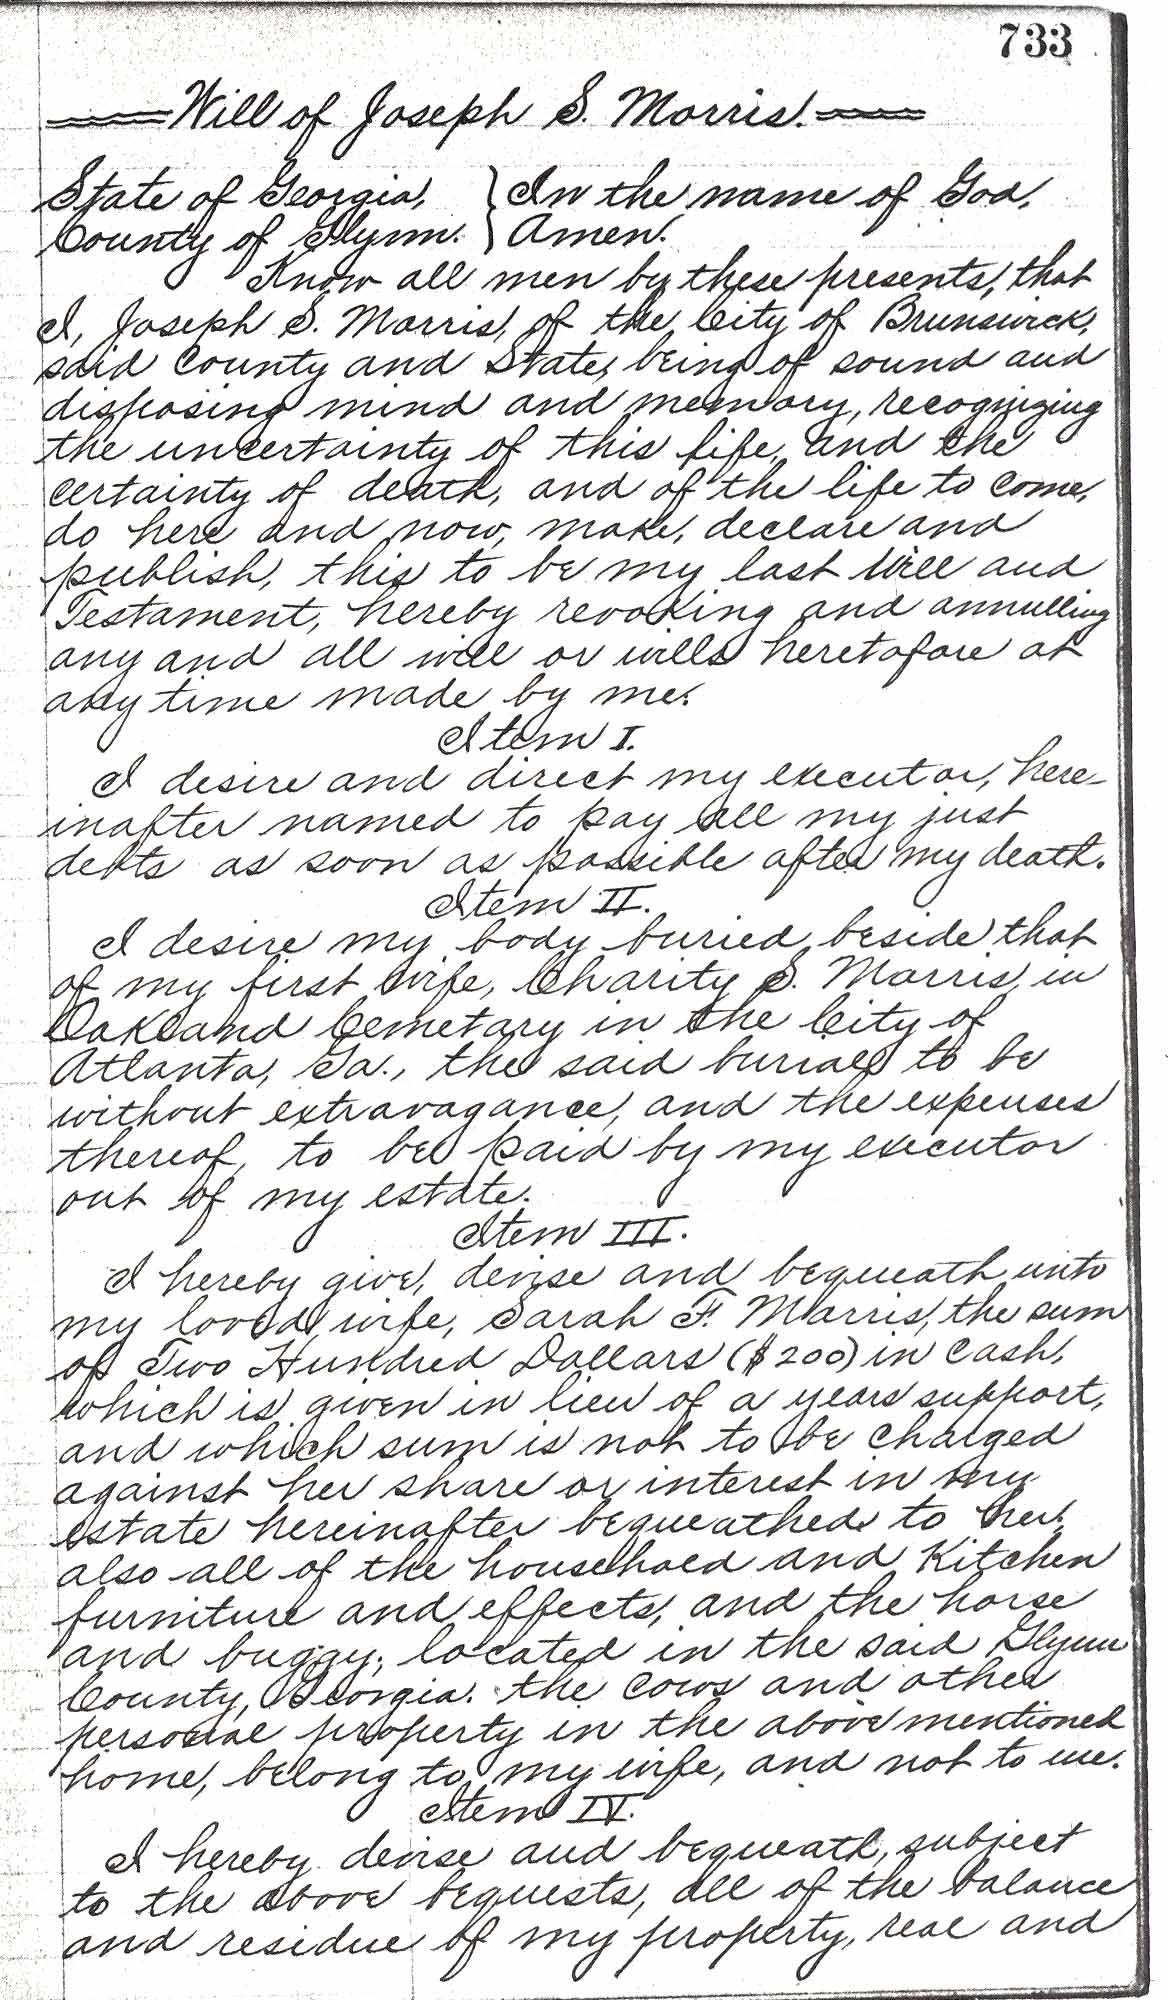 733
Will of Joseph S. Morris.
State of Georgia, } In the name of God,
County of Glynn. } Amen.
Know all men by these presents, that
I, Joseph S. Morris, of the City of Brunswick,
said County and State, being of sound and
disposing mind and memory, recognizing
the uncertainty of this life, and the
certainty of death, and of the life to come,
do here and now, make, declare and
publish, this to be my last Will and
Testament, hereby revoking and annulling
any and all will or wills heretofore at
any time made by me.
Item I.
I desire and direct my executor, here-
inafter named to pay all my just
debts as soon as possible after my death.
Item II.
I desire my body buried beside that
of my first wife, Charity S. Morris, in
Oakland Cemetary in the City of
Atlanta, Ga., the said burial to be
without extravagance, and the expenses
thereof, to be paid by my executor
out of my estate.
Item III.
I hereby give, devise and bequeath unto
my loved wife, Sarah F. Morris, the sum
of Two Hundred Dollars ($200) in cash,
which is given in lieu of a years support,
and which sum is not to be charged
against her share or interest in my
estate hereinafter bequeathed to her,
also all of the household and Kitchen
furniture and effects, and the horse
and buggy, located in the said Glynn
County, Georgia. the cows and other
personal property in the above mentioned
home, belong to my wife, and not to me.
Item IV.
I hereby devise and bequeath, subject
to the above bequests, all of the balance
and residue of my property, real and